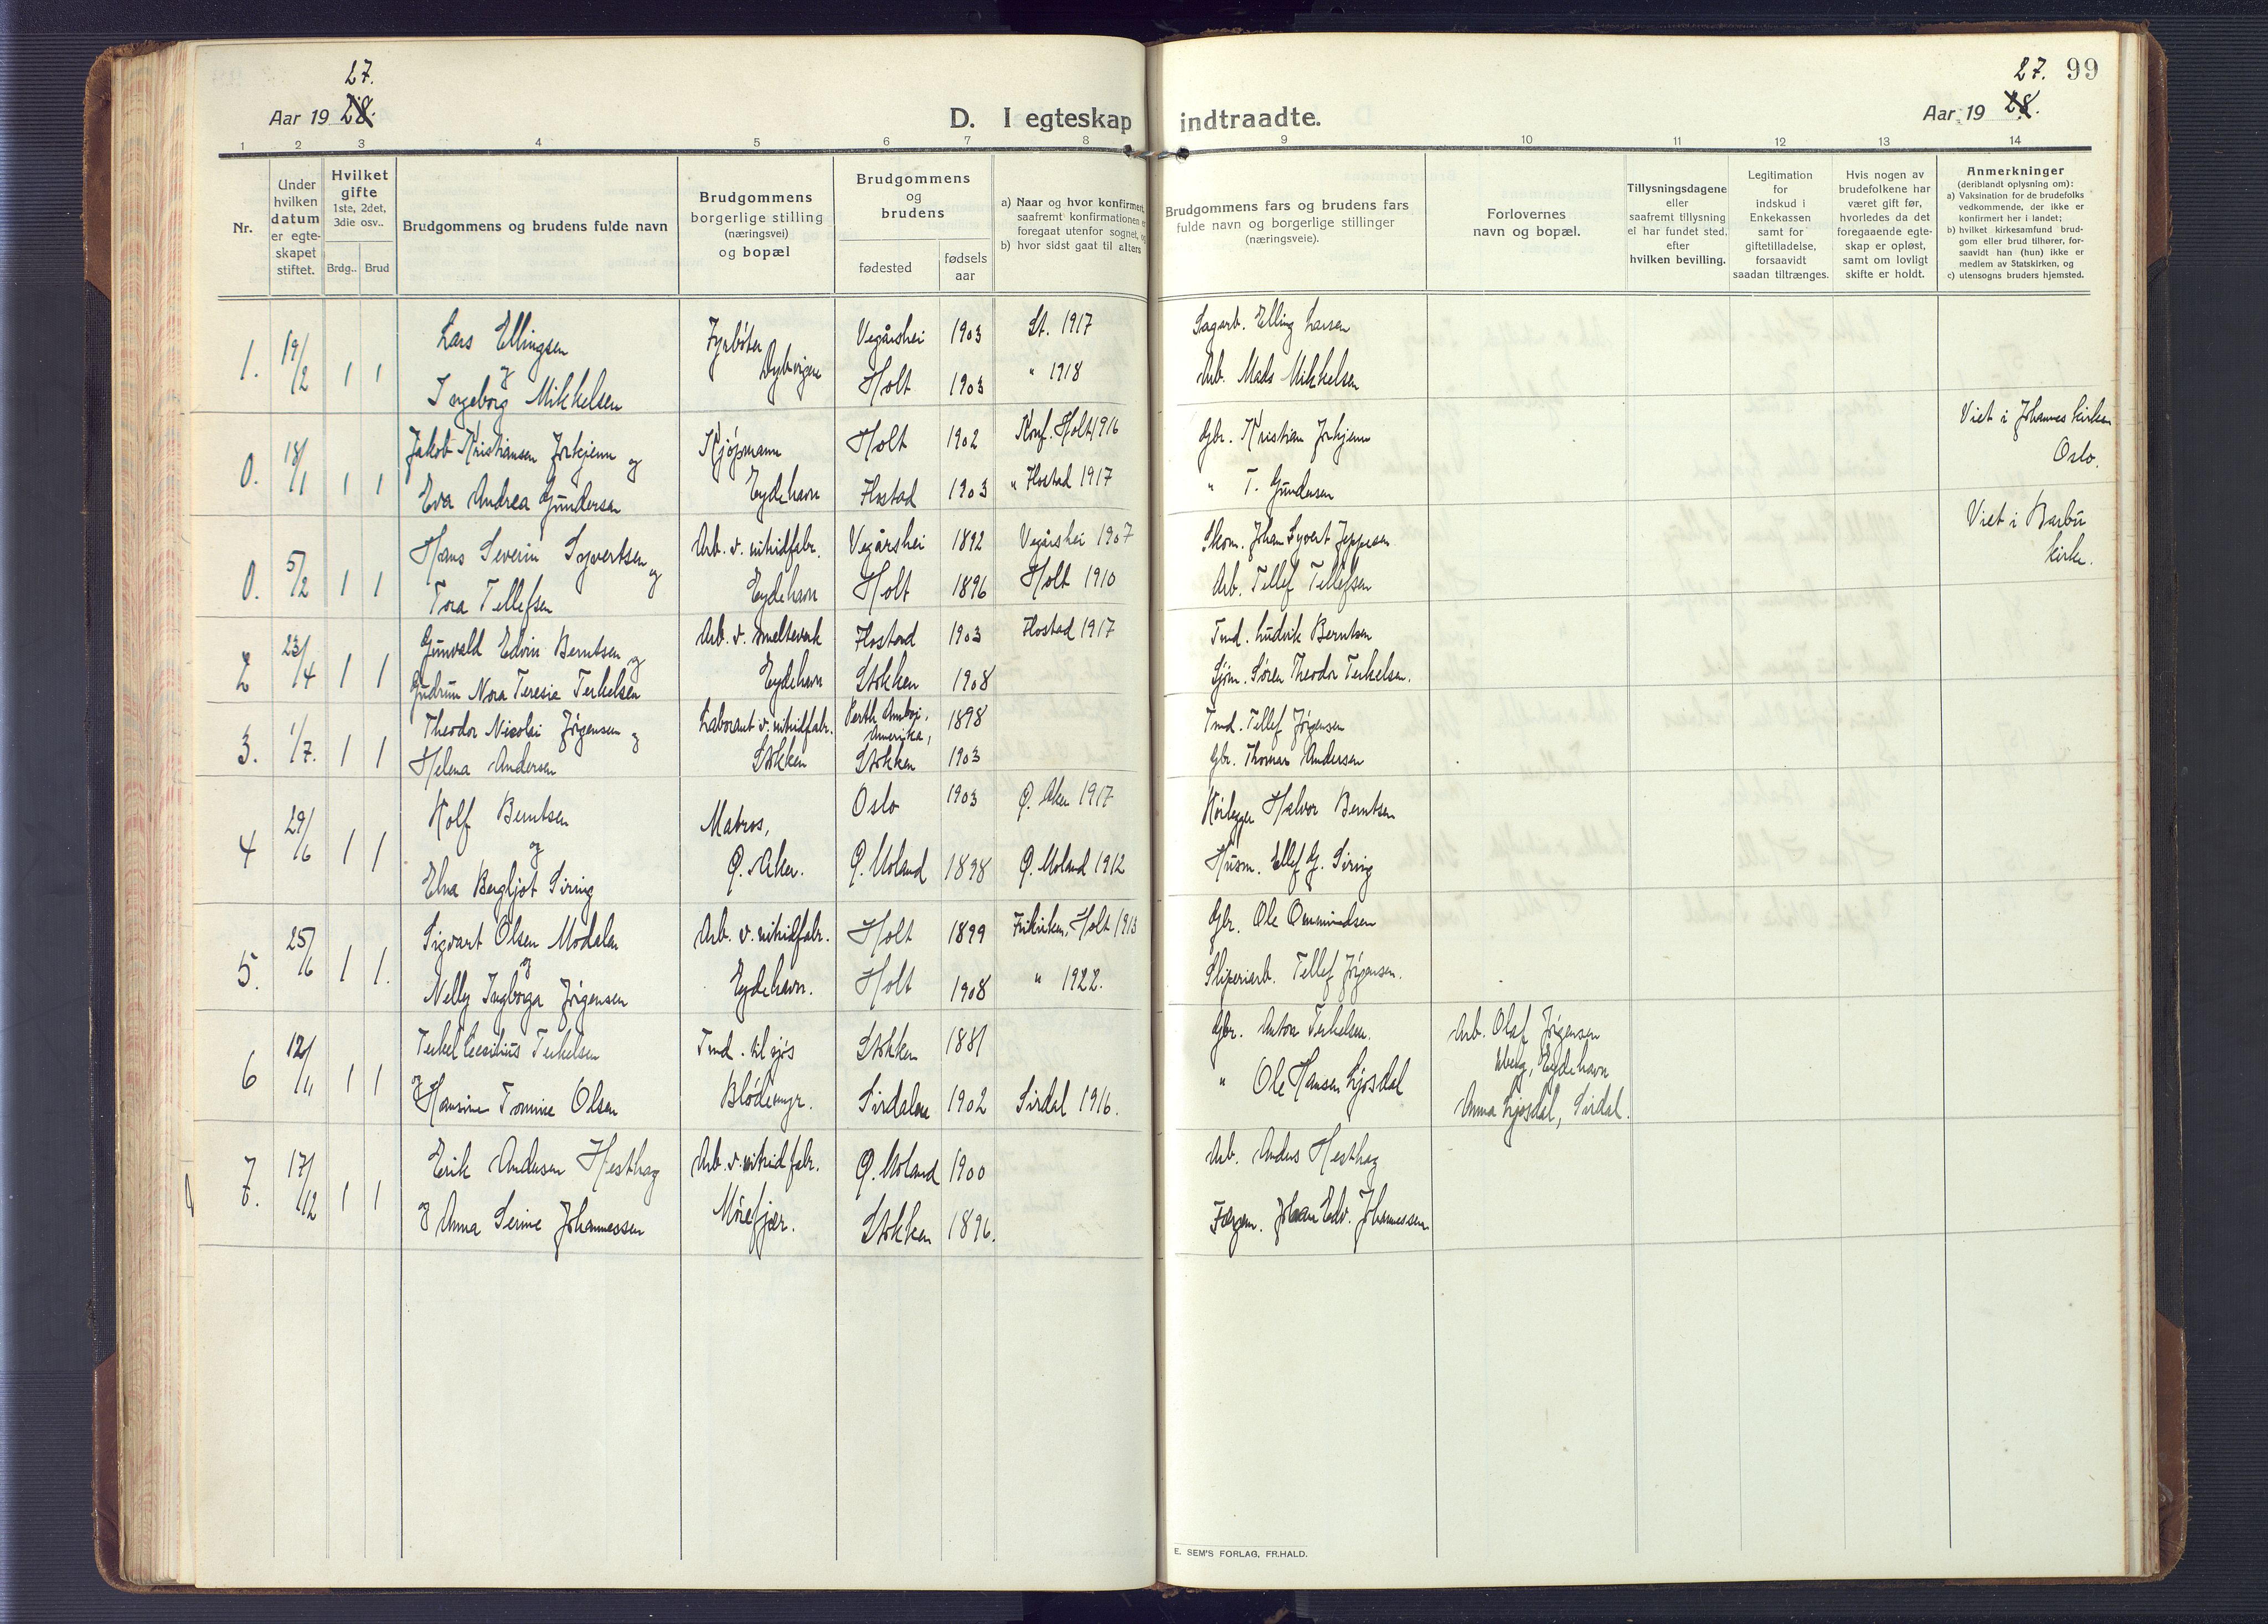 27.
Aar 19 28.
D. I egteskap indtraadte.
27. 99
Aar 19 28.
1 2 3 4 5 6 7 8 9 10 11 12 13 14
Nr.
Under
hvilken
datum
er egte-
skapet
stiftet.
Hvilket
gifte
1ste, 2det,
3die osv..
Brdg.. Brud
Brudgommens og brudens fulde navn
Brudgommens
borgerlige stilling
(næringsvei)
og bopæl
Brudgommens
og
brudens
fødested
fødsels
aar
a) Naar og hvor konfirmert,
saafremt konfirmationen er
foregaat utenfor sognet, og
b) hvor sidst gaat til alters
Brudgommens fars og brudens fars
fulde navn og borgerlige stillinger
(næringsveie).
Forlovernes
navn og bopæl.
Tillysningsdagene
eller
saafremt tillysning
ei har fundet sted,
efter
hvilken bevilling.
Legitimation
for
indskud i
Enkekassen
samt for
giftetilladelse,
forsaavidt
saadan tiltrænges.
Hvis nogen av
brudefolkene har
været gift før,
hvorledes da det
foregaaende egte-
skap er opløst,
samt om lovligt
skifte er holdt.
Anmerkninger
(deriblandt oplysning om):
a) Vaksination for de brudefolks
vedkommende, der ikke er
konfirmert her i landet;
b) hvilket kirkesamfund brud-
gom eller brud tilhører, for-
saavidt han (hun) ikke er
medlem av Statskirken, og
c) utensogns bruders hjemsted.
1. 19/2 1 1 Lars Ellingsen Fyrbøter Vegårshei 1903 St. 1917 Sagarb. Elling Larsen
og
Ingeborg Mikkelsen Dybvigen Holt 1903 " 1918 Arb. Mads Mikkelsen
0. 18/1 1 1 Jakob Kristiansen og Kjøpmann Holt 1902 Konf. Holt 1916 Gbr. Kristian Viet i Johannes kirken
Eva Andrea Gundersen Eydehavn Flostad 1903 " Flostad 1917 " T. Gundersen Oslo.
0. 5/2 1 1 Hans Severin Syvertsen og Arb. v. nitridfabr. Vegårshei 1892 Vegårshei 1907 Skom. Johan Syvert Jeppesen Viet i Barbu
Tora Tellefsen Eydehavn Holt 1896 Holt 1910 Arb. Tellef Tellefsen kirke.
2 23/4 1 1 Gunvald Edvin Berntsen og Arb. v. smelteverk Flostad 1903 Flostad 1917 Tmd. Ludvik Berntsen
Gudrun Nora Teresie Terkelsen Eydehavn Stokken 1908 Sjøm. Søren Theodor Terkelsen.
3. 1/7. 1 1 Theodor Nicolai Jørgensen og Laborant v. nitridfabr. Perth Amboi, Amerika, 1898 Tmd. Tellef Jørgensen
Helena Andersen Stokken Stokken 1903 Gbr. Thomas Andersen
4 29/6 1 1 Rolf Berntsen Matros, Oslo 1903 Ø. Aker 1917 Rørlegger Halvor Berntsen
og
Elna Bergljot Siring Ø. Aker. Ø. Moland 1898 Ø. Moland 1912 Husm. Ellef G. Siring
5. 25/6 1 1. Sigvart Olsen Modalen Arb. v. nitridfabr. Holt 1899 Frikirken, Holt 1913 Gbr. Ole Ommundsen
og
Nelly Ingborga Jørgensen Eydehavn. Holt 1908 " 1922. Sliperiarb. Tellef Jørgensen.
6 12/11 1 1 Terkel Cecilius Terkelsen Tmd. til sjøs Stokken 1881 Gbr. Anton Terkelsen. Arb. Olaf Jørgensen
Eydehavn
og Hansine Tomine Olsen Blødemyr. Sirdalen 1902 Sirdal 1916. " Ole Hansen Ljosdal Anna Ljosdal, Sirdal.
7. 17/12 1 1 Erik Andersen Hesthag Arb. v. nitridfabr. Ø. Moland 1900 Arb. Anders Hesthag
og Anna Serine Johannessen Mørefjær. Stokken 1896. Færgem. Johan Edv. Johannessen
E. SEM'S FORLAG, FR.HALD.